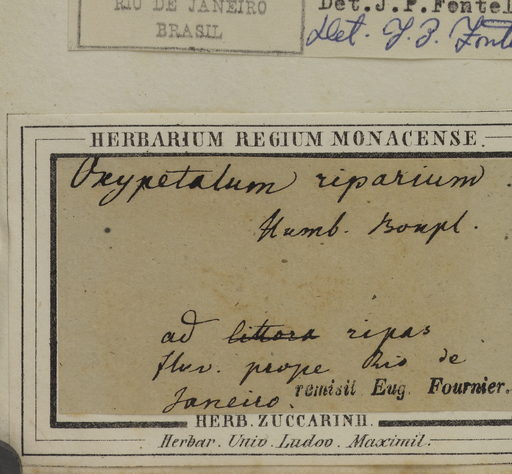 RIO DE JANEIRO
BRASIL
Det. J. P. Fontel
Det. J. P. Fonte
HERBARIUM REGIUM MONACENSE.
Oxypetalum riparium.
Humb. Bonpl.
ad littora ripas
fluv. prope Rio de
Janeiro.
remisit Eug. Fournier.
HERB. ZUCCARINII.
Herbar. Univ. Ludov. Maximil.